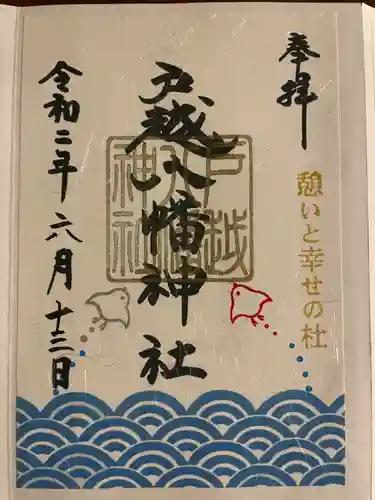 奉拝
憩いと幸せの杜
戸越八幡神社
戸越
八幡
神社
令和二年六月十三日